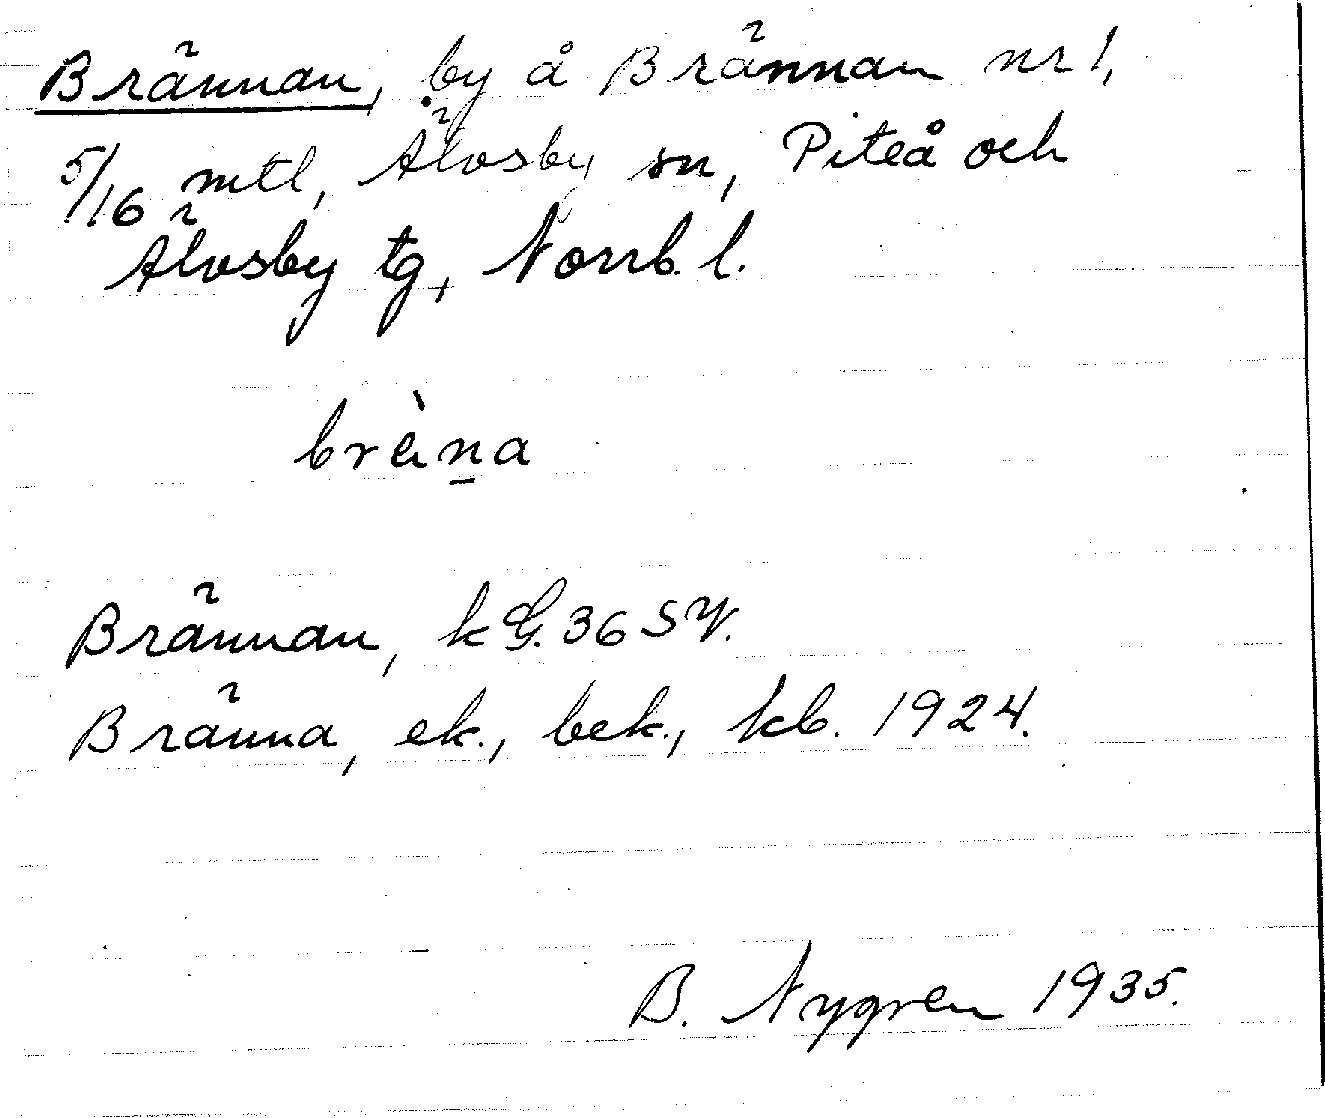 Brännan, by å Brännan nr 1,
5/16 mtl, Älvsby sn, Piteå och
Älvsby tg, Norrb. l.
brèna
Brännan, kG. 36 SV.
Bränna, ek., bek., kb. 1924.
B. Nygren 1935.